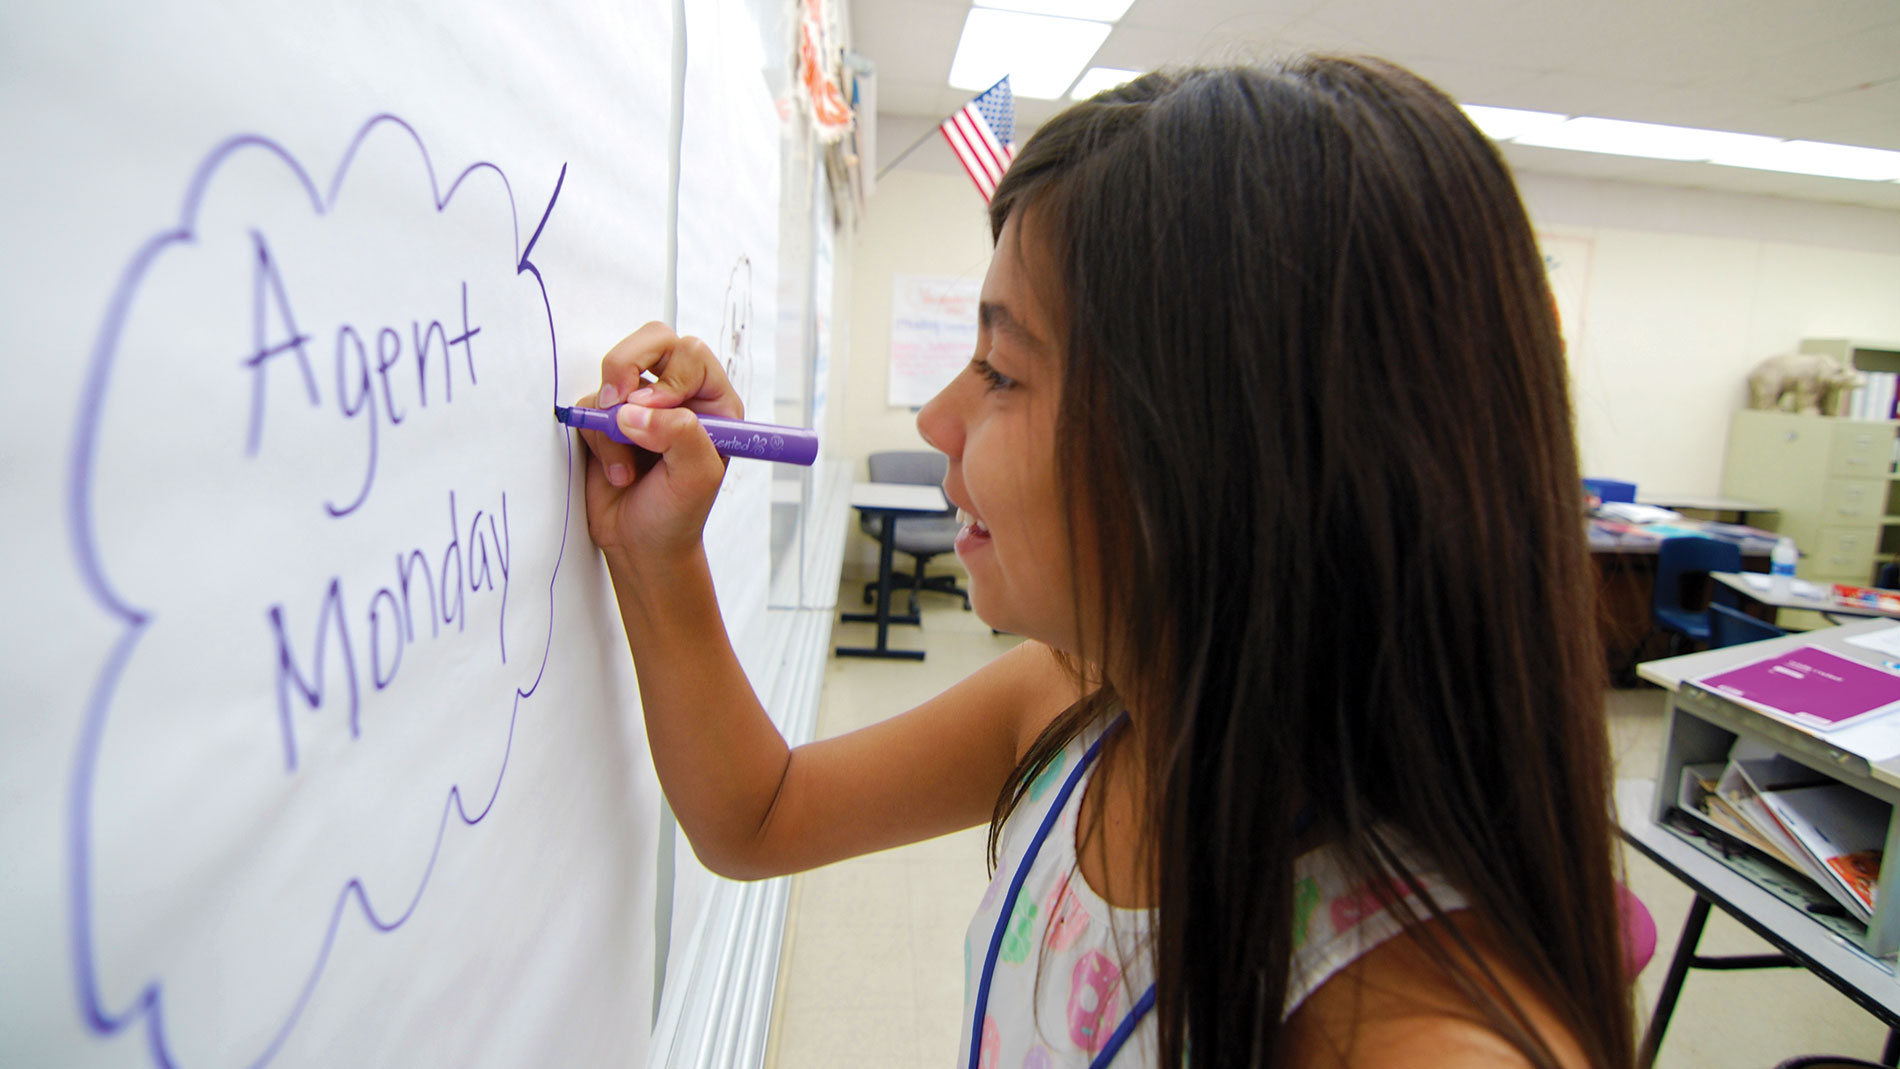 Agent
Monday
Scented